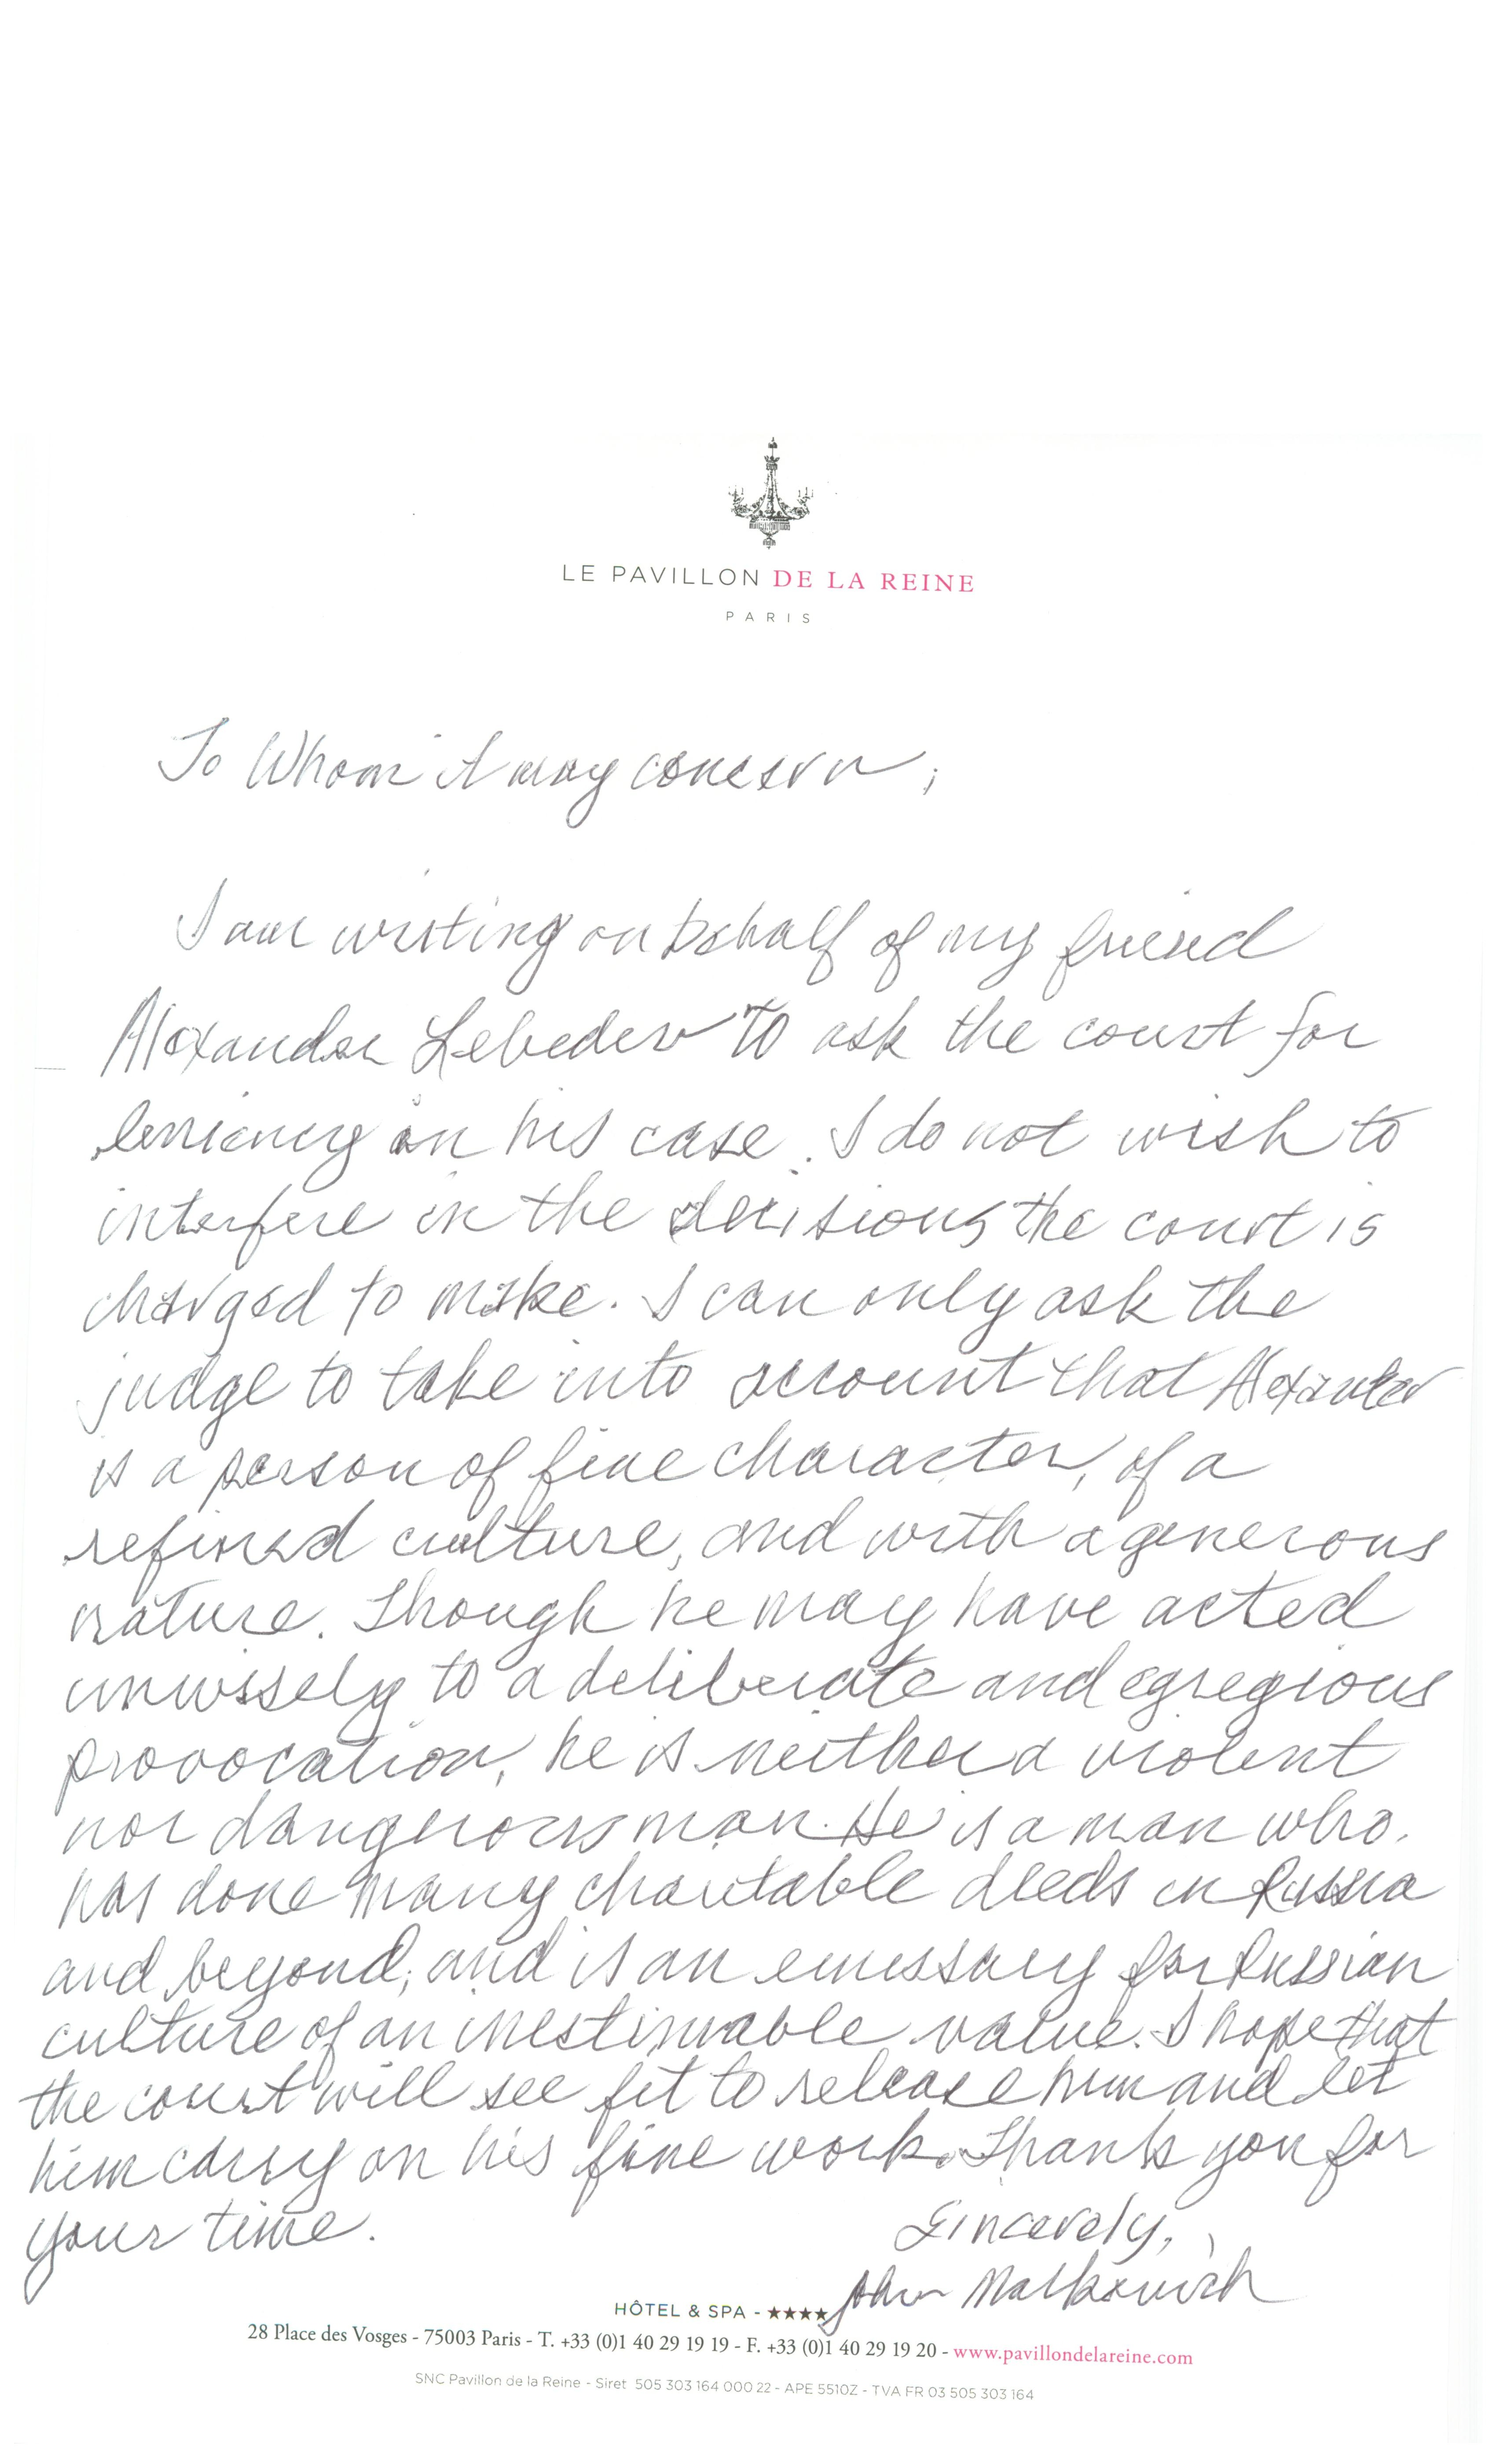 LE PAVILLON DE LA REINE
PARIS
To Whom it may concern;
I am writing on behalf of my friend
Alexander Lebedev to ask the court for
leniency in his case. I do not wish to
interfere in the decisions the court is
charged to make. I can only ask the
judge to take into account that Alexander
is a person of fine character, of a
refined culture, and with a generous
nature. Though he may have acted
unwisely to a deliberate and egregious
provocation, he is neither a violent
nor dangerous man. He is a man who
has done many charitable deeds in Russia
and beyond, and is an emissary for Russian
culture of an inestimable value. I hope that
the court will see fit to release him and let
him carry on his fine work. Thank you for
your time.
Sincerely,
John Malkovich
HÔTEL & SPA - ★★★★
28 Place des Vosges - 75003 Paris - T. +33 (0)1 40 29 19 19 - F. +33 (0)1 40 29 19 20 - www.pavillondelareine.com
SNC Pavillon de la Reine - Siret 505 303 164 000 22 - APE 5510Z - TVA FR 03 505 303 164